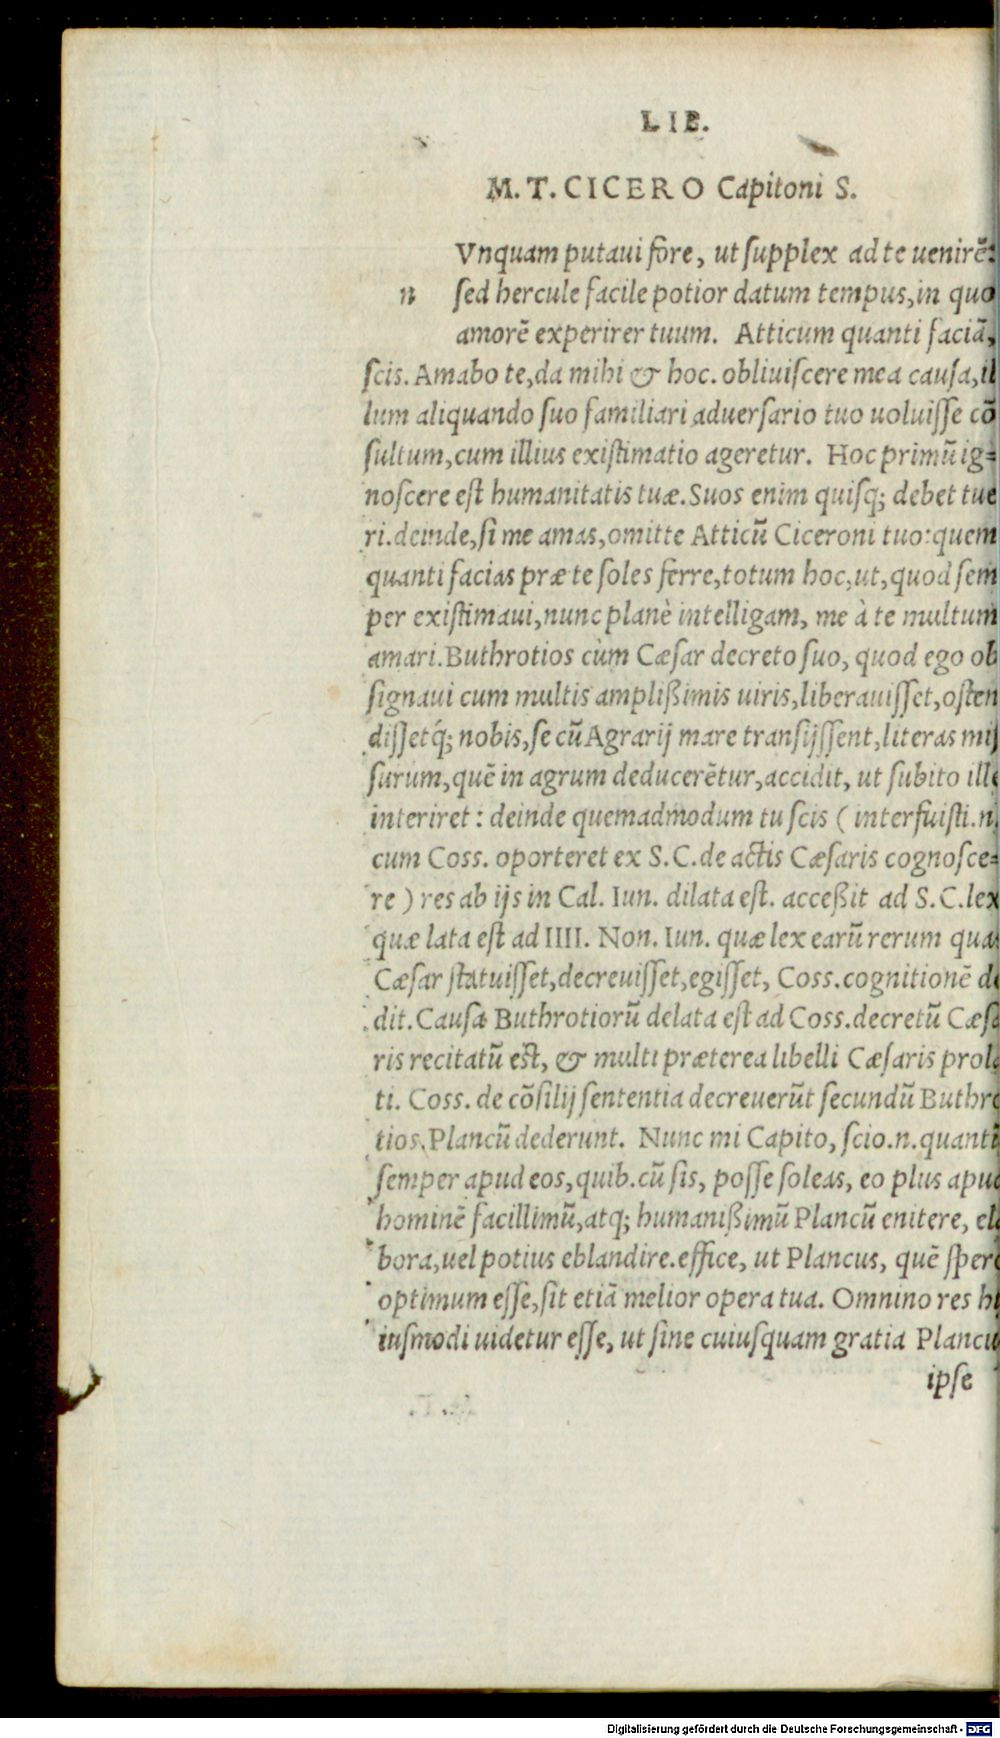 LIB.
M. T. CICERO Capitoni S.
Vnquam putaui fore, ut supplex ad te uenirẽ:
n sed hercule facile potior datum tempus, in quo
amorẽ experirer tuum. Atticum quanti faciã,
scis. Amabo te, da mihi & hoc. obliuiscere mea causa, il
lum aliquando suo familiari aduersario tuo uoluisse cõ
sultum, cum illius existimatio ageretur. Hoc primũ ig=
noscere est humanitatis tuæ. Suos enim quisq; debet tue
ri. deinde, si me amas, omitte Atticũ Ciceroni tuo: quem
quanti facias præ te soles ferre, totum hoc, ut, quod sem
per existimaui, nunc planè intelligam, me à te multum
amari. Buthrotios cùm Cæsar decreto suo, quod ego ob
signaui cum multis amplißimis uiris, liberauisset, osten
dissetq́; nobis, se cũ Agrarij mare transijssent, literas mis
surum, quẽ in agrum deducerẽtur, accidit, ut subito ille
interiret: deinde quemadmodum tu scis (interfuisti.n.
cum Coss. oporteret ex S. C. de actis Cæsaris cognosce=
re) res ab ijs in Cal. Iun. dilata est. acceßit ad S. C. lex
quæ lata est ad IIII. Non. Iun. quæ lex earũ rerum quas
Cæsar statuisset, decreuisset, egisset, Coss. cognitionẽ de
dit. Causa Buthrotiorũ delata est ad Coss. decretũ Cæsa
ris recitatũ est, & multi præterea libelli Cæsaris prola
ti. Coss. de cõsilij sententia decreuerũt secundũ Buthro
tios. Plancũ dederunt. Nunc mi Capito, scio.n. quantũ
semper apud eos, quib. cũ sis, posse soleas, eo plus apud
hominẽ facillimũ, atq; humanißimũ Plancũ enitere, ela
bora, uel potius eblandire. effice, ut Plancus, quẽ spero
optimum esse, sit etiã melior opera tua. Omnino res hu
iusmodi uidetur esse, ut sine cuiusquam gratia Plancus
ipse
Digitalisierung gefördert durch die Deutsche Forschungsgemeinschaft - DFG